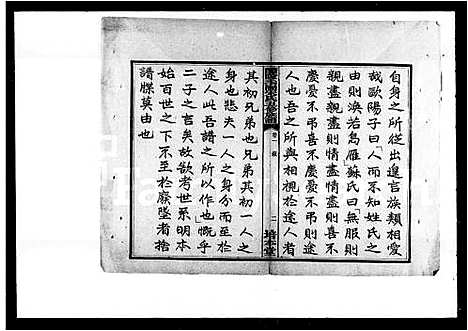 自身之所從出遑言族類相愛
哉歐陽子曰人而不知姓氏之
由則渙若鳥雁蘇氏曰無服則
親盡親盡則情盡情盡則喜不
慶憂不弔喜不慶憂不弔則途
人也吾之所與相視於途人者
卷一 二 培本堂
其初兄弟也兄弟其初一人之
身也悲夫一人之身分而至於
途人此吾譜之所以作也慨乎
二子之言矣故欲考世系明本
始百世之下不至於廢墜者捨
譜牒莫由也